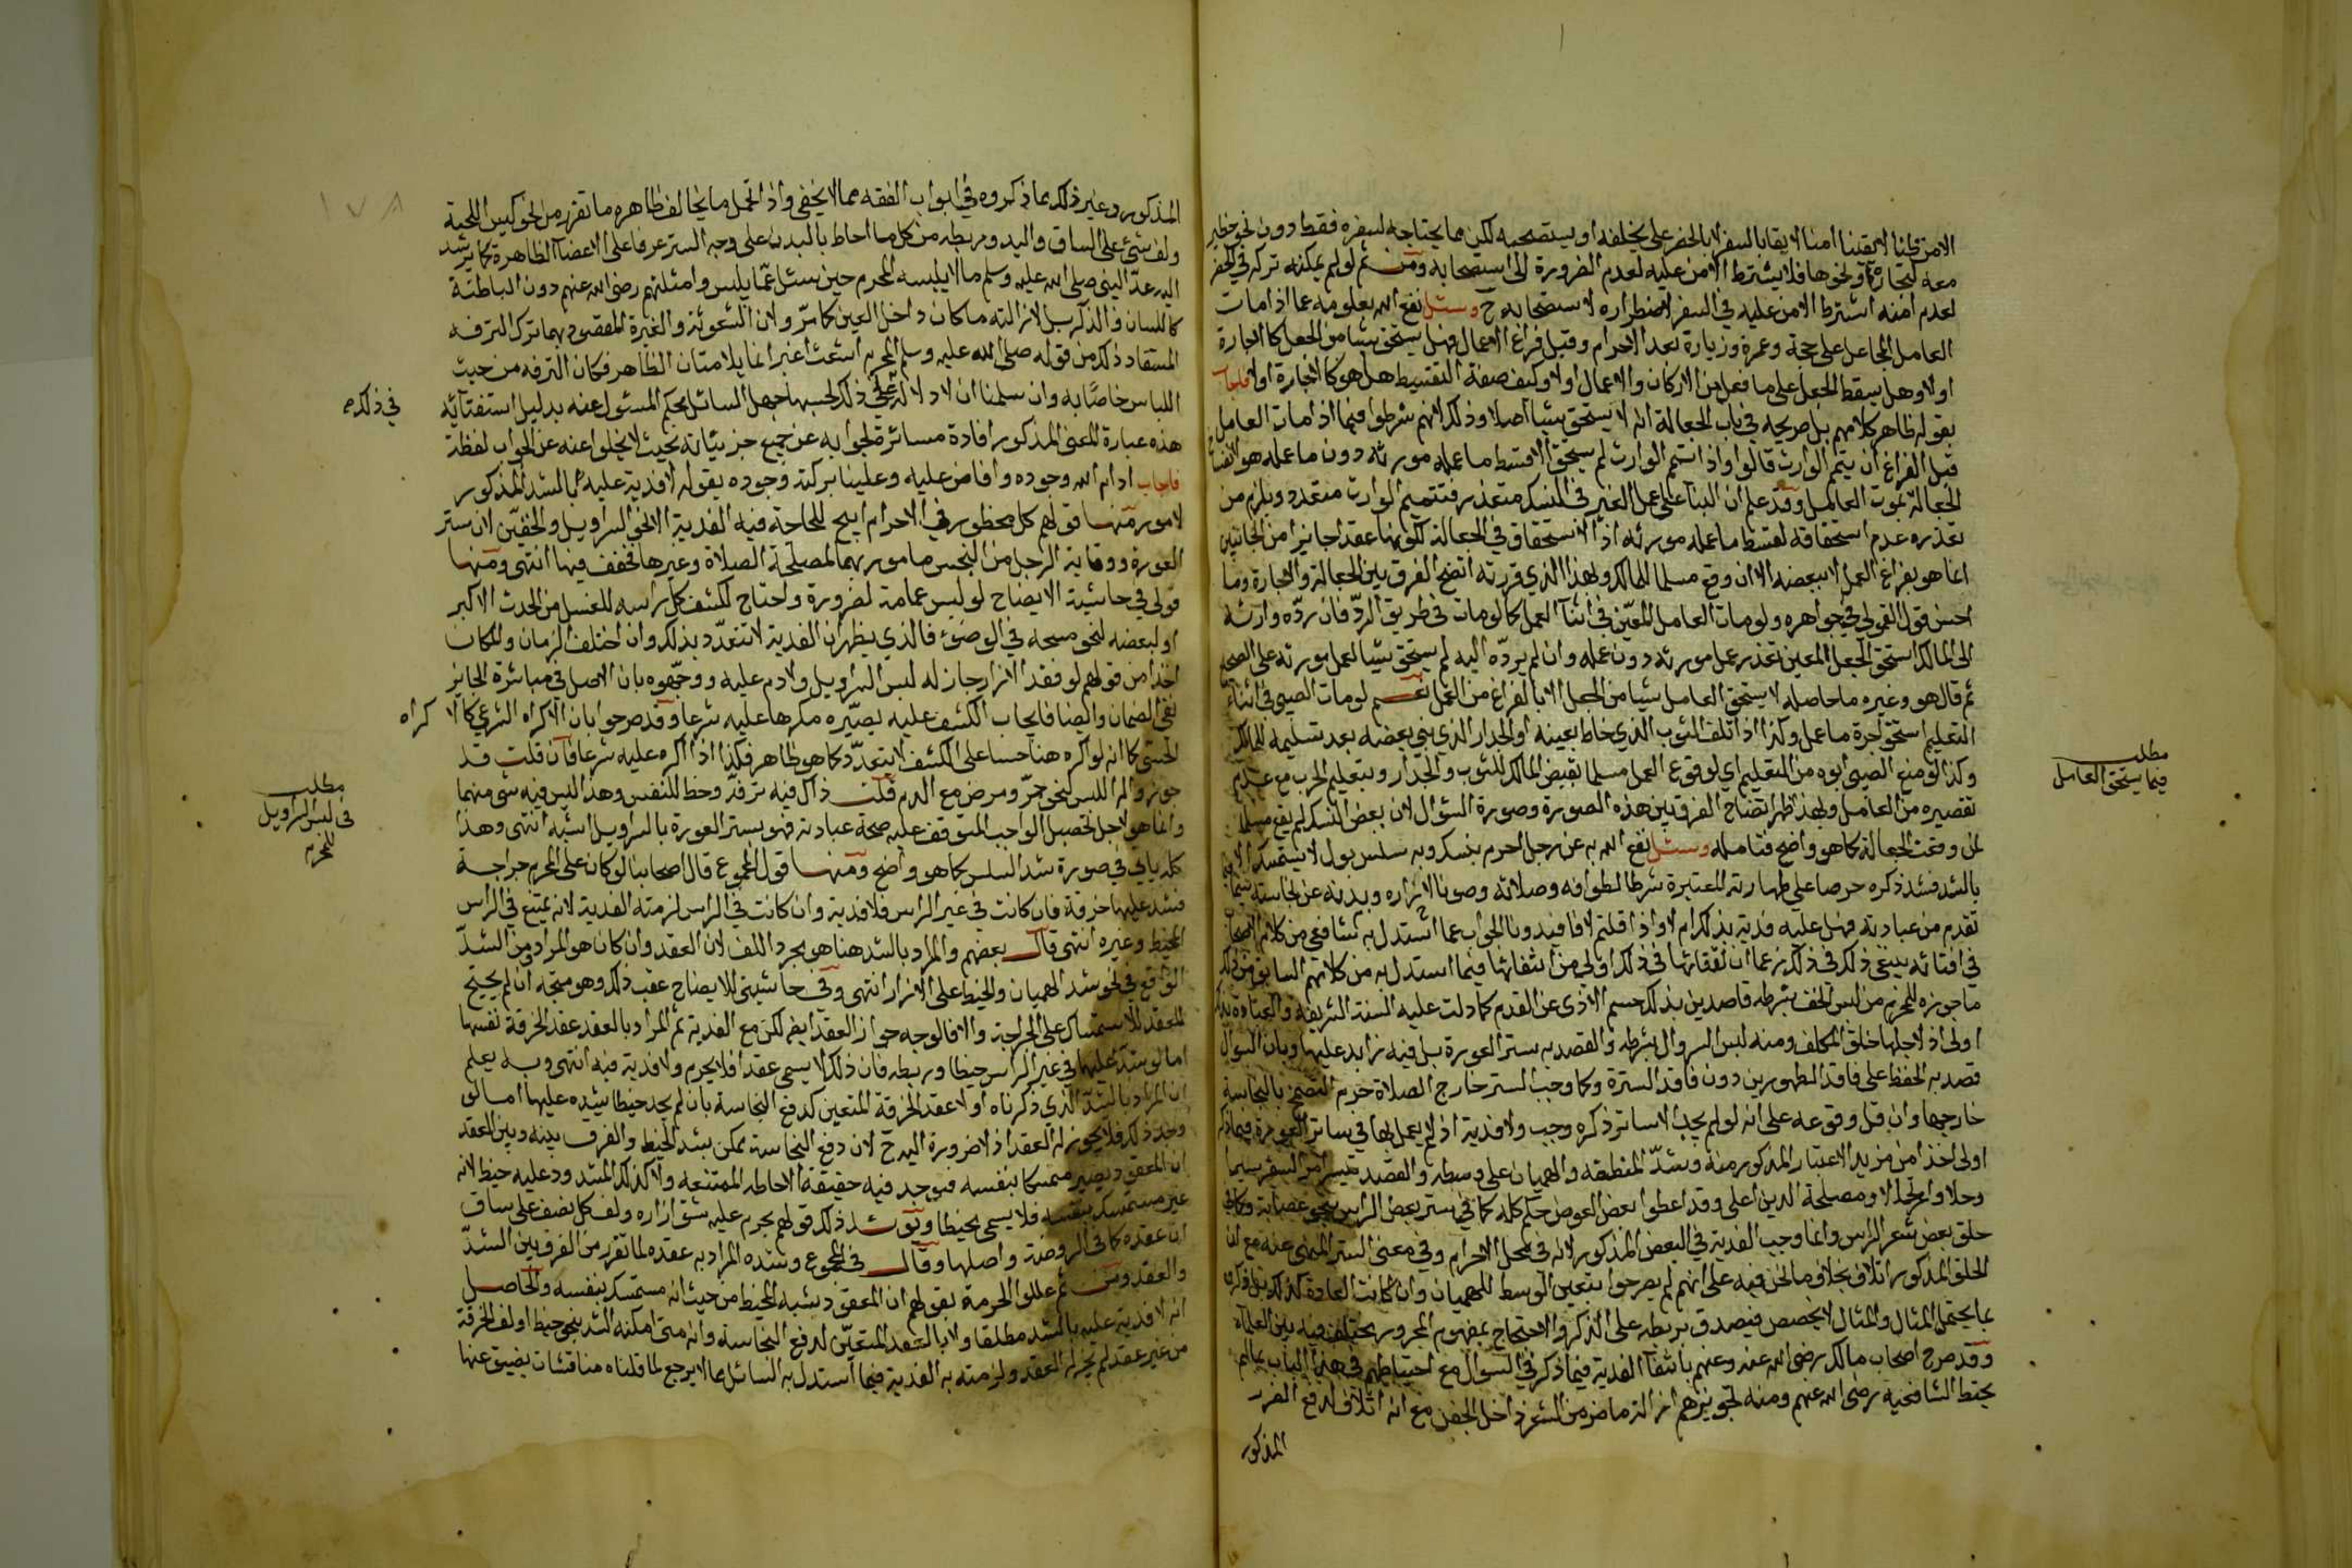 الامن قلنا لاتفقنا امنا لايقا بالسفر لا بالحضر على يخلفه او يستصحبه لكن مما يحتاجه لسفره فقط دون نحو خطير
معه لتجارة او نحوها فلا يشترط الامن عليه لعدم الضرورة الى استصحابه ومن ثم لو لم يمكنه تركه في الحضر
لعدم امنه اشترط الامن عليه في السفر لاضطراره لاستصحابه ح وسئل نفع الله بعلومه عما اذا مات
العامل الجاعل على حجة وعمرة وزيارة بعد الاحرام وقبل فراغ الاعمال فهل يستحق شيئا من الجعل كالاجارة
اولا وهل يسقط الجعل على ما فعل من الاركان والاعمال اولا وكيف صفة التقسيط هل هو كالاجارة اولا فاجاب
بقوله ظاهر كلامهم بل صريحه في باب الجعالة انه لا يستحق شيئا اصلا وذلك لانهم شرطوا فيما اذا مات العامل
قبل الفراغ ان يتم الوارث قالوا واذا تمم الوارث لم يستحق الا قسط ما عمله مورثه دون ما عمله هو
الجعالة بموت العامل وقد علم ان البناء على عمل الغير في النسك متعذر فتتميم الوارث متعذر ويلزم من
تعذره عدم استحقاقه لقسط ما عمله مورثه اذ الاستحقاق في الجعالة لكونها عقدا جائزا من الجانبين
انما هو بفراغ العمل لا ببعضه الا ان وقع مسلما للمالك وبهذا الذي قررته اتضح الفرق بين الجعالة والاجارة وما
احسن قول القمولي في جواهره ولو مات العامل المعين في اثنا العمل كما لو مات في طريق الرد فان رده وارثه
الى المالك استحق الجعل المعين بقدر عمل مورثه دون عمله وان لم يرده اليه لم يستحق شيئا لعمل مورثه على الصحيح
ثم قال هو وغيره ما حاصله لا يستحق العامل شيئا من الجعل الا بالفراغ من العمل نعم لو مات الصبي في اثناء
التعليم استحق اجرة ما عمل وكذا اذا تلف الثوب الذي خاط بعضه او الجدار الذي بنى بعضه بعد تسليمه للمالك
وكذا لو منع الصبي ابوه من التعليم اي لوقوع العمل مسلما بقبض المالك للثوب والجدار وبتعليم الحر مع عدم
تقصيره من العامل وبهذا ظهر اتضاح الفرق بين هذه الصورة وصورة السؤال لان بعض النسك لم يقع مسلما
لمن وقعت الجعالة كما هو واضح فتامله وسئل نفع الله به عن رجل احرم بنسك وبه سلس بول لا يستمسك الا
بالشد فشد ذكره حرصا على طهارته المعتبرة شرطا لطوافه وصلاته وصونا لازاره وبدنه عن نجاسة
تقدم من عبادته فهل عليه فدية بذلك ام لا واذا قلتم لا فافيدونا الجواب عما استدل به شافعي من كلام
في افتائه ينبغي ذلك في ذلك زعما ان نفقاتها في ذلك اولى من انتفائها فيما استدل به من كلامهم السابق من ذلك
ما جوزه للمحرم من لبس الخف بشرطه قاصدين بذلك حسم الاذى عن القدم كما دلت عليه السنة الشريفة والعبادة
اولى اذ لاجلها خلق المكلف ومنه لبس السروال بشرطه والقصد به ستر العورة بل فيه زايد عليها وبان السؤال
قصد به الحفظ على فاقد الطهورين دون فاقد السترة وكما وجب الستر خارج الصلاة حرم التضمخ بالنجاسة
خارجها وان قل وقوعه على انه لو لم يجد الا ساتر ذكره وجب ولا فدية اذ لم يعمل بها في ساتر العورة فيما ذكر
اولى اخذا من مزيد الاعتبار المذكور منه وشد المنطقة والهميان على وسطه والقصد تيسير امر السفر
وحلا وارتحالا ومصلحة الدين اعلى وقد اعطوا بعض العوض حكم كله كما في ستر بعض الراس بنحو عصابة وكما في
حلق بعض شعر الراس وانما وجب الفدية في البعض المذكور لانه في محل الاحرام وفي معنى الستر المنهي عنه مع ان
الحلق المذكور اتلاف بخلاف ما نحن فيه على انهم لم يصرحوا بتعين الوسط للهميان وان كانت العادة كذلك
بما يحتمل المثال والمثال لا يخصص فيصدق بربطه على الذكر والاحتجاج بمفهوم المجرور مختلف فيه بين العلماء
وقد صرح اصحاب مالك رضي الله عنه وعنهم بانتفاء الفدية فيما ذكر في السؤال مع احتياطهم في هذا الباب بما لم
يحتط الشافعية رضي الله عنهم ومنه تجويزهم ازالة ما ضر من الشعر داخل الجفن مع انه اتلاف لدفع الضرر
المذكور
مطلب
فيما يستحق العامل
١٧٨
المذكور وغير ذلك مما ذكروه في ابواب الفقه مما لا يخفى واذ احتمل ما يخالف ظاهره ما تقرر من نحو كيس اللحية
ولف شيء على الساق واليد وربطه من كل ما احاط بالبدن على وجه الستر عرفا على الاعضا الظاهرة كما يرشد
اليه عد النبي صلى الله عليه وسلم ما لا يلبسه المحرم حين سئل عما يلبس وامثلتهم رضي الله عنهم دون الباطنة
كاللسان والذكر بل لازالته ما كان داخل العين كما مر ولان الشعوثة والغبرة المقصود بهما ترك الترفه
المستفاد ذلك من قوله صلى الله عليه وسلم المحرم اشعث اغبر انما يلامتان الظاهر فكان الترفه من حيث
اللباس خاصا به وان سلمنا ان لا دلالة على ذلك لحسبها جهل السائل بحكم المسئول عنه بدليل استفتائه
في ذلك
هذه عبارة المعنى المذكور افادة مسائرة لجوابه عن جميع جزئياته بحيث لا يخلوا عنه عن الجواب لفظة
فاجاب ادام الله وجوده وافاض عليه وعلينا بركته وجوده بقوله لا فدية عليه بالشد المذكور
لامور منها قولهم كل محظور في الاحرام ابيح للحاجة فيه الفدية الا نحو السراويل والخفين لان ستر
العورة ووقاية الرجل من النجس مامور بهما لمصلحة الصلاة وغيرها فخفف فيها انتهى ومنها
قولي في حاشية الايضاح لو لبس عمامة لضرورة واحتاج لكشف كل راسه للغسل من الحدث الاكبر
او لبعضه لنحو مسحه في الوضوء فالذي يظهر ان الفدية لا تتعدد بذلك وان اختلف الزمان والمكان
اخذا من قولهم لو فقد الازار جاز له لبس السراويل ولا دم عليه ووجهوه بان الاصل في مباشرة الجائز
نفي الضمان وايضا فايجاب الكشف عليه يصيره مكرها عليه شرعا وقد صرحوا بان الاكراه الشرعي كالا
كراه
الحسي كما انه لو اكره هنا حسا على الكشف لا يتعدد كما هو ظاهر فكذا اذا اكره عليه شرعا فان قلت قد
جوزوا له اللبس لنحو حر ومرض مع الدم قلت ذاك فيه ترفه وحظ للنفس وهذا ليس فيه شيء منهما
وانما هو لاجل تحصيل الواجب المتوقف عليه صحة عبادته فهو بستر العورة بالسراويل اشبه انتهى وهذا
كله ياتي في صورة شد السلس كما هو واضح ومنها قول المجموع قال اصحابنا لو كان على المحرم جراحة
فشد عليها خرقة فان كانت في غير الراس فلا فدية وان كانت في الراس لزمته الفدية لانه يمتنع في الراس
المخيط وغيره انتهى قال بعضهم والمراد بالشد هنا هو مجرد اللف لان العقد وان كان هو المراد من الشد
الواقع في نحو شد الهميان والخيط على الازار انتهى وفي حاشيتي للايضاح عقب ذلك وهو متجه ان لم يحتج
للعقد للاستمساك على الجراحة والا فالوجه جواز العقد ايضا لكن مع الفدية ثم المراد بالعقد عقد الخرقة نفسها
اما لو شد عليها في غير الراس خيطا وربطه فان ذلك لا يسمى عقدا فلا يحرم ولا فدية فيه انتهى وبه يعلم
ان المراد بالشد الذي ذكرناه اولا عقد الخرقة المتعين لدفع النجاسة بان لم يجد خيطا يشده عليها اما لو
وجد ذلك فلا يجوز له العقد اذ لا ضرورة اليه ح لان دفع النجاسة يمكن بشد الخيط والفرق بينه وبين العقد
ان المعقود يصير مستمسكا بنفسه فيوجد فيه حقيقة الاحاطة الممتنعة ولا كذلك المشدود عليه خيط لانه
غير مستمسك بنفسه فلا يسمى مخيطا ويؤيد ذلك قولهم يحرم عليه شق ازاره ولف كل نصف على ساق
ان عقده كما في الروضة واصلها وقال في المجموع وشده المراد به عقده لما تقرر من الفرق بين الشد
والعقد ومن ثم عللوا الحرمة بقولهم ان المعقود يشبه المخيط من حيث انه مستمسك بنفسه والحاصل
انه لا فدية عليه بالشد مطلقا ولا بالعقد المتعين لدفع النجاسة وانه متى امكنه الشد بنحو خيط او لف الخرقة
من غير عقد لم يجز له العقد ولزمته به الفدية فيما استدل به السائل مما لا يرجع لما قلناه مناقشات يضيق عنها
مطلب
في لبس السراويل
للمحرم